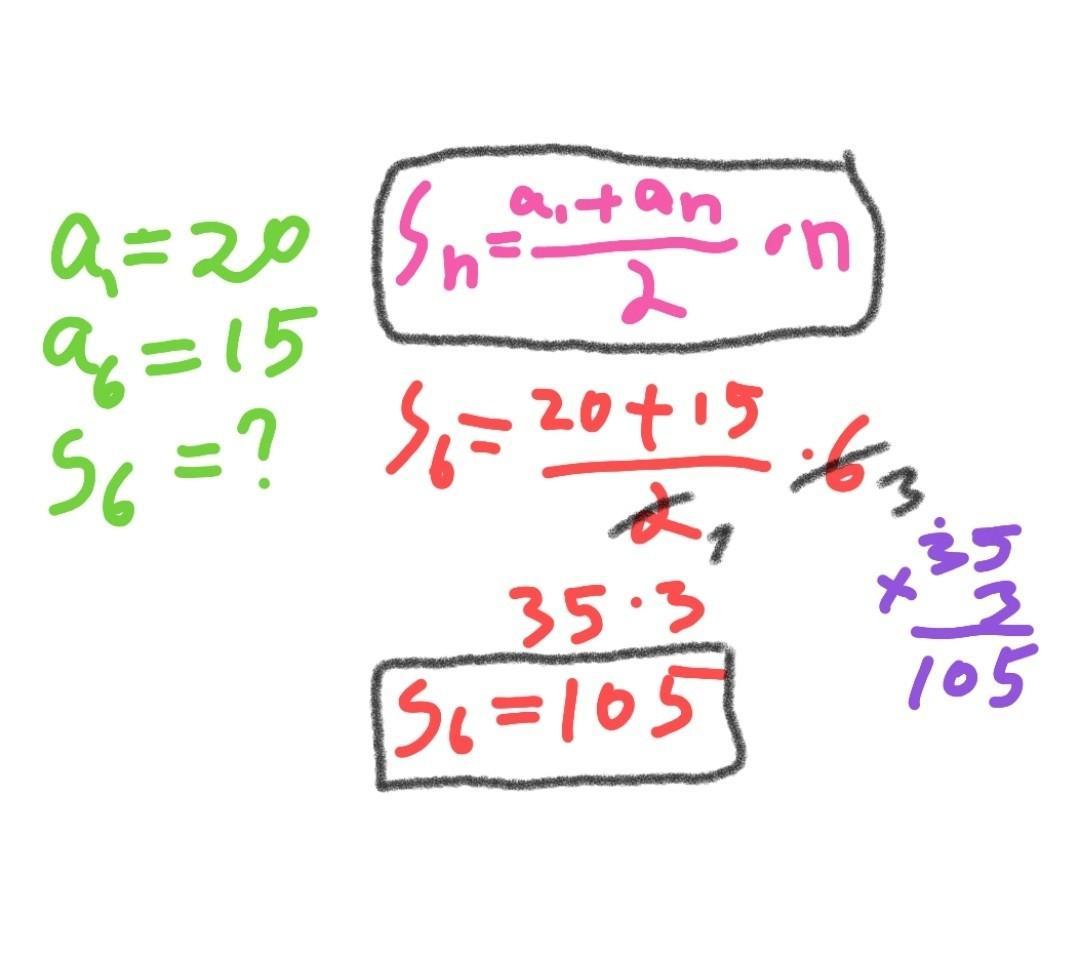 a₁ = 20
a₆ = 15
S₆ = ?
Sₙ = (a₁ + aₙ)/2 · n
S₆ = (20 + 15)/2 · 6 3
1
35 · 3
S₆ = 105
35
× 3
105